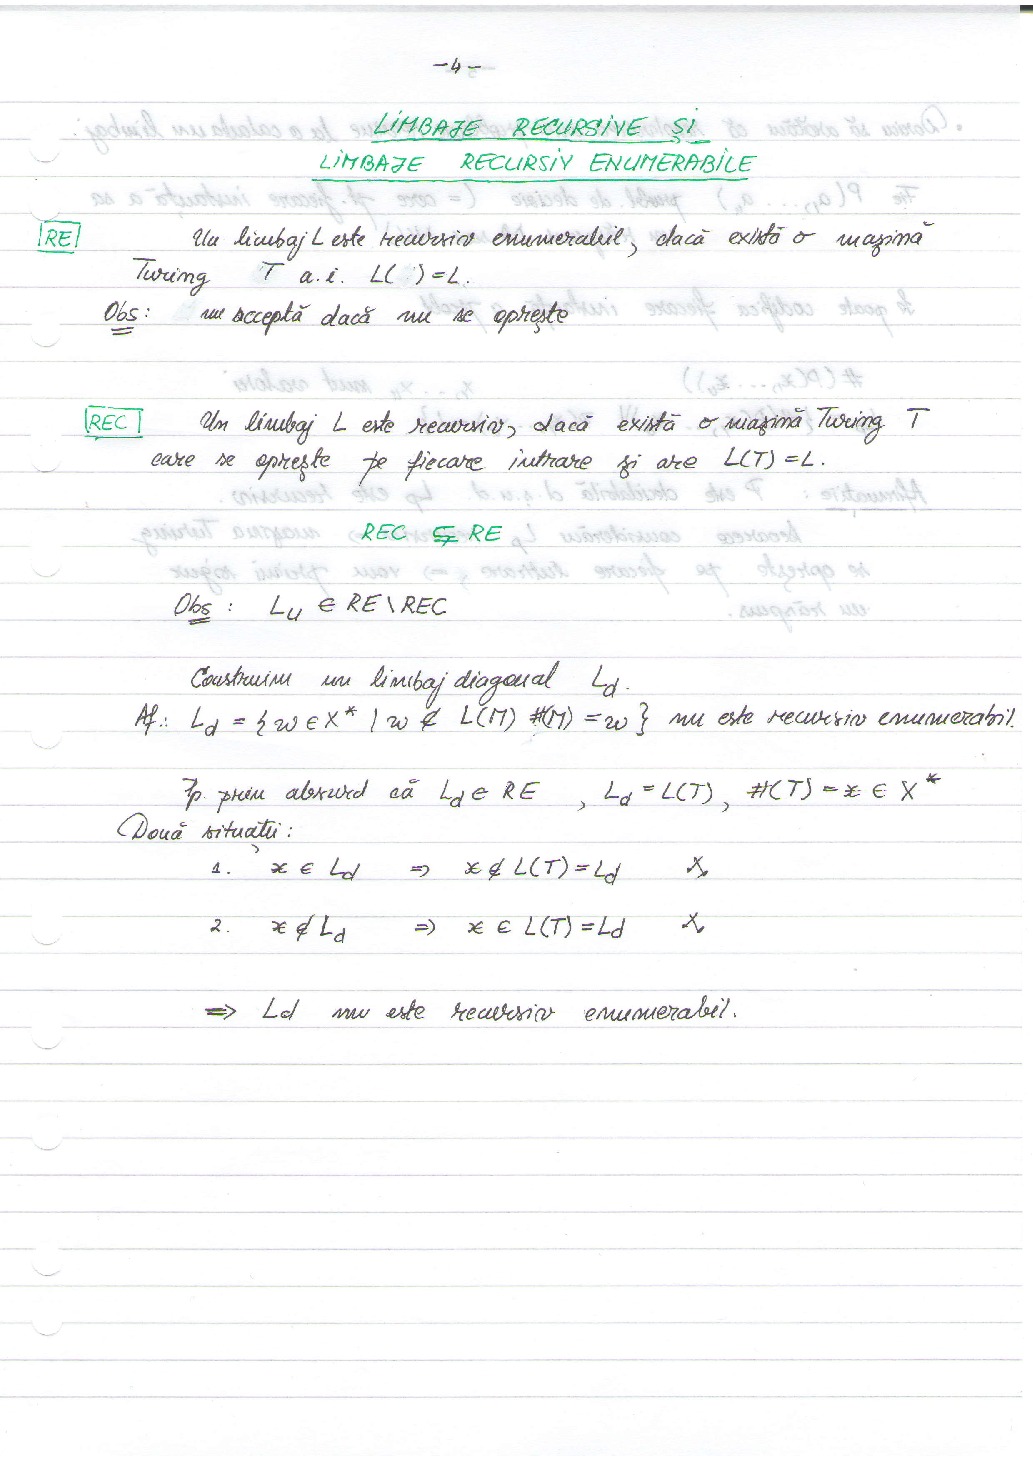 -4-
LIMBAJE RECURSIVE ȘI
LIMBAJE RECURSIV ENUMERABILE
RE Un limbaj L este recursiv enumerabil, dacă există o mașină
Turing T a.i. L( )=L.
Obs: nu acceptă dacă nu se oprește
REC Un limbaj L este recursiv, dacă există o mașină Turing T
care se oprește pe fiecare intrare și are L(T)=L.
REC ⊊ RE
Obs: L_u ∈ RE\REC
Construim un limbaj diagonal L_d.
Af.: L_d = {w ∈ X* | w ∉ L(M) #(M) = w} nu este recursiv enumerabil.
Ip. prin absurd că L_d ∈ RE , L_d = L(T), #(T) = x ∈ X*
Două situații:
1. x ∈ L_d ⇒ x ∉ L(T) = L_d X
2. x ∉ L_d ⇒ x ∈ L(T) = L_d X
⇒ L_d nu este recursiv enumerabil.